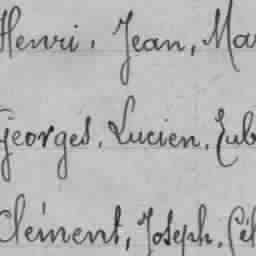 Henri, Jean, Ma
Georges, Lucien, Eub
Clément, Joseph, Cél